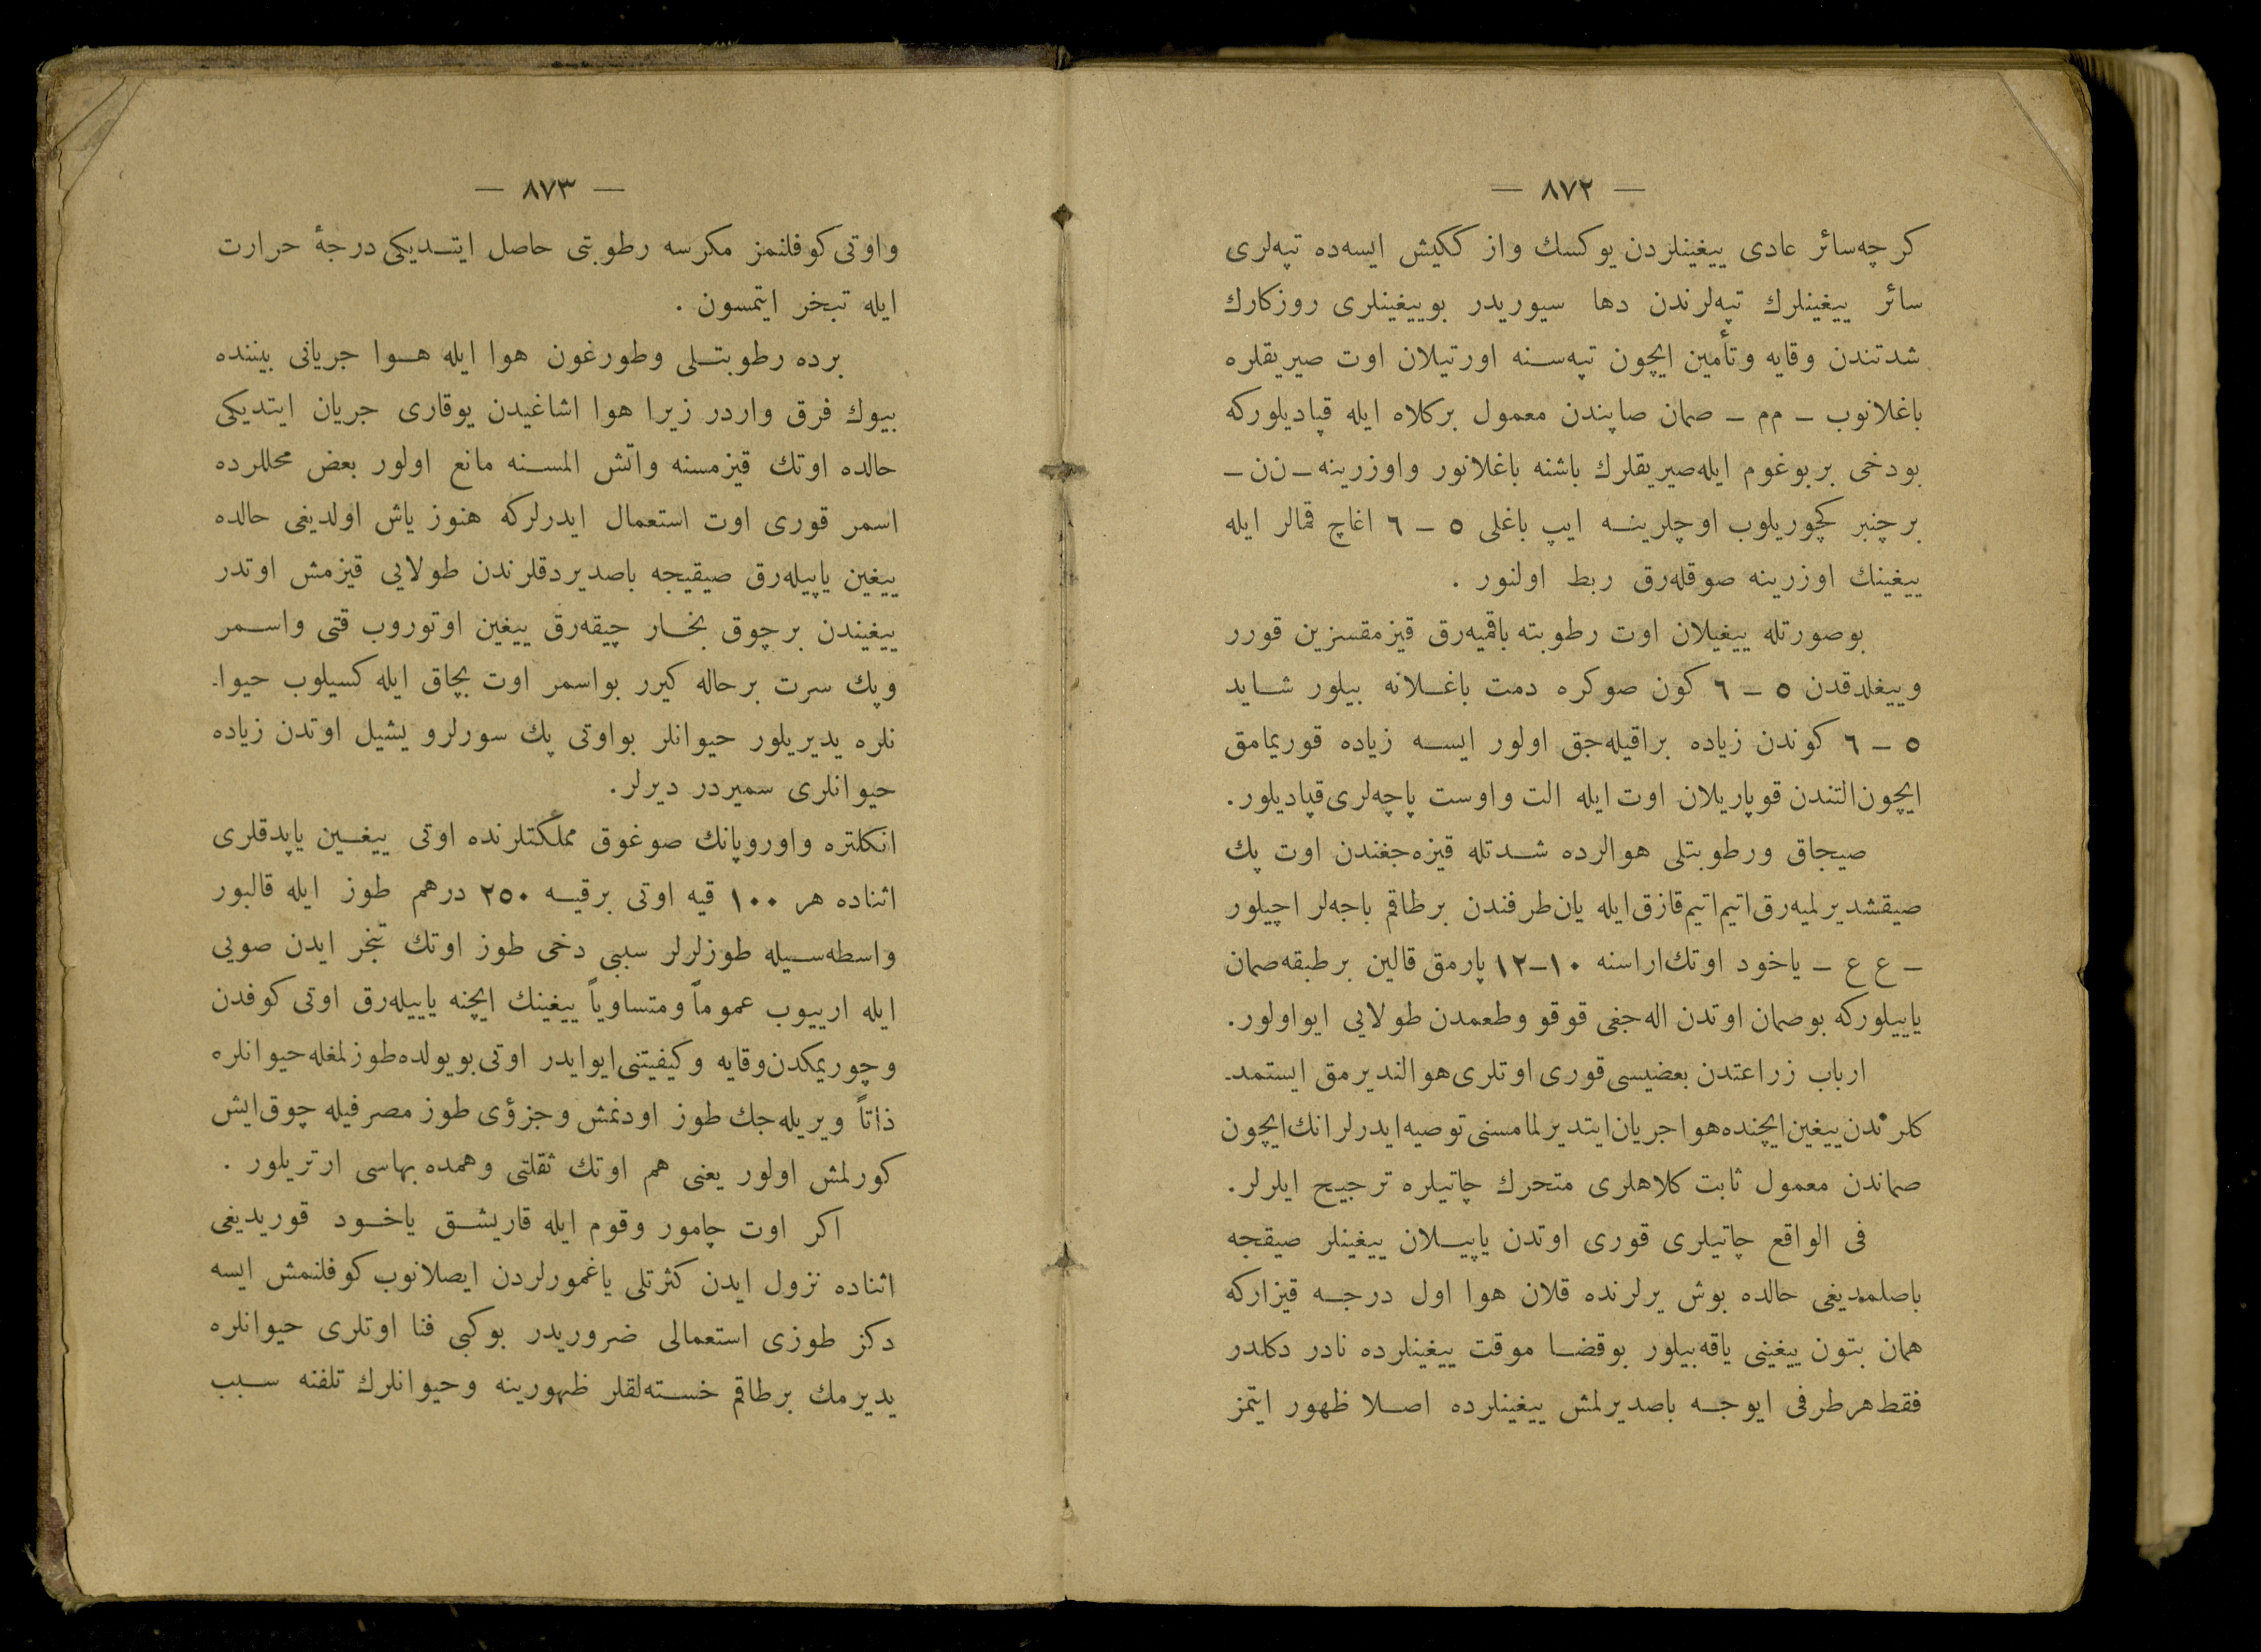 — ٨٧٢ —
كرچه سائر عادى ييغينلردن يوكسك واز ككيش ايسه ده تپه لرى
سائر ييغينلرك تپه لرندن دها سيوريدر بوييغينلرى روزكارك
شدتندن وقايه وتأمين ايچون تپه سنه اورتيلان اوت صيريقلره
باغلانوب ـ م م ـ صمان صاپندن معمول بركلاه ايله قپاديلوركه
بودخى بربوغوم ايله صيريقلرك باشنه باغلانور واوزرينه ـ ن ن ـ
برچنبر كچوريلوب اوچلرينه ايپ باغلى ٥ ـ ٦ اغاج قمالر ايله
ييغينك اوزرينه صوقله رق ربط اولنور .
بوصورتله ييغيلان اوت رطوبته باقميه رق قيزمقسزين قورر
وييغلدقدن ٥ ـ ٦ كون صوكره دمت باغلانه بيلور شايد
٥ ـ ٦ كوندن زياده براقيله جق اولور ايسه زياده قوريمامق
ايچون التندن قوپاريلان اوت ايله الت واوست پاچه لرى قپاديلور.
صيجاق ورطوبتلى هوالرده شدتله قيزه جغندن اوت پك
صيقشديرلميه رق اتيم اتيم قازق ايله يان طرفندن برطاقم باجه لر اچيلور
ـ ع ع ـ ياخود اوتك اراسنه ١٠ـ١٢ پارمق قالين برطبقه صمان
ياپيلوركه بوصمان اوتدن اله جغى قوقو وطعمدن طولايى ايو اولور.
ارباب زراعتدن بعضيسى قورى اوتلرى هوالنديرمق ايستمدـ
كلرندن ييغين ايچنده هوا جريان ايتديرلمامسنى توصيه ايدرلر انك ايچون
صماندن معمول ثابت كلاهلرى متحرك چاتيلره ترجيح ايلرلر.
فى الواقع چاتيلرى قورى اوتدن ياپيلان ييغينلر صيقجه
باصلمديغى حالده بوش يرلرنده قلان هوا اول درجه قيزاركه
همان بتون ييغينى ياقه بيلور بوقضا موقت ييغينلرده نادر دكلدر
فقط هرطرفى ايوجه باصديرلمش ييغينلرده اصلا ظهور ايتمز
— ٨٧٣ —
واوتى كوفلنمز مكرسه رطوبتى حاصل ايتديكى درجهٔ حرارت
ايله تبخر ايتمسون .
برده رطوبتلى وطورغون هوا ايله هوا جريانى بيننده
بيوك فرق واردر زيرا هوا اشاغيدن يوقارى جريان ايتديكى
حالده اوتك قيزمسنه واتش المسنه مانع اولور بعض محللرده
اسمر قورى اوت استعمال ايدرلركه هنوز ياش اولديغى حالده
ييغين ياپيله رق صيقيجه باصديردقلرندن طولايى قيزمش اوتدر
ييغيندن برچوق بخار چيقه رق ييغين اوتوروب قتى واسمر
وپك سرت برحاله كيرر بواسمر اوت بچاق ايله كسيلوب حيواـ
نلره يديريلور حيوانلر بواوتى پك سورلرو يشيل اوتدن زياده
حيوانلرى سميردر ديرلر.
انكلتره واوروپانك صوغوق مملكتلرنده اوتى ييغين ياپدقلرى
اثناده هر ١٠٠ قيه اوتى برقيه ٢٥٠ درهم طوز ايله قالبور
واسطه سيله طوزلرلر سببى دخى طوز اوتك تبخر ايدن صويى
ايله ارييوب عموماً ومتساوياً ييغينك ايچنه ياييله رق اوتى كوفدن
وچوريمكدن وقايه وكيفيتنى ايوايدر اوتى بويولده طوزلمغله حيوانلره
ذاتاً ويريله جك طوز اودنمش وجزؤى طوز مصرفيله چوق ايش
كورلمش اولور يعنى هم اوتك ثقلتى وهمده بهاسى ارتريلور .
اكر اوت چامور وقوم ايله قاريشق ياخود قوريديغى
اثناده نزول ايدن كثرتلى ياغمورلردن ايصلانوب كوفلنمش ايسه
دكز طوزى استعمالى ضروريدر بوكبى فنا اوتلرى حيوانلره
يديرمك برطاقم خسته لقلر ظهورينه وحيوانلرك تلفنه سبب